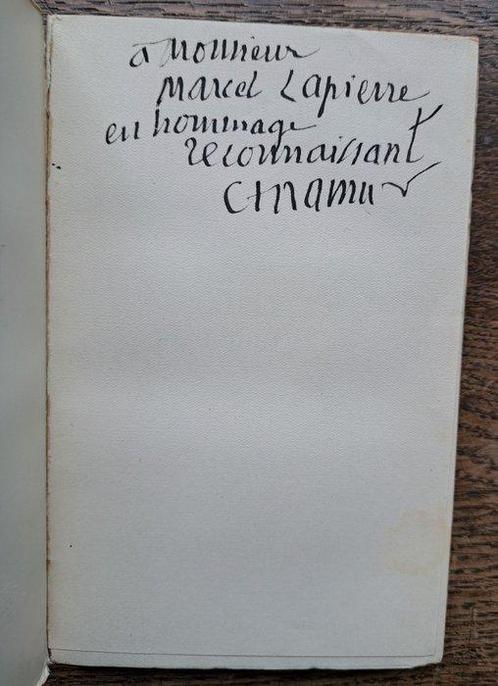 à Monsieur
Marcel Lapierre
en hommage
reconnaissant